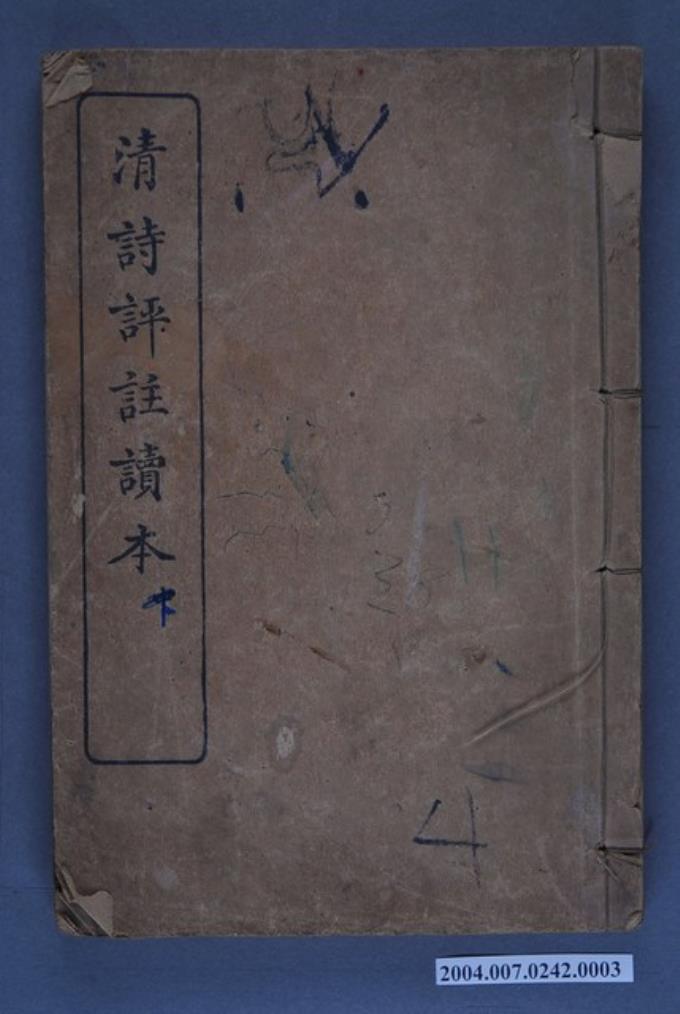 清詩評註讀本
下
4
2004.007.0242.0003